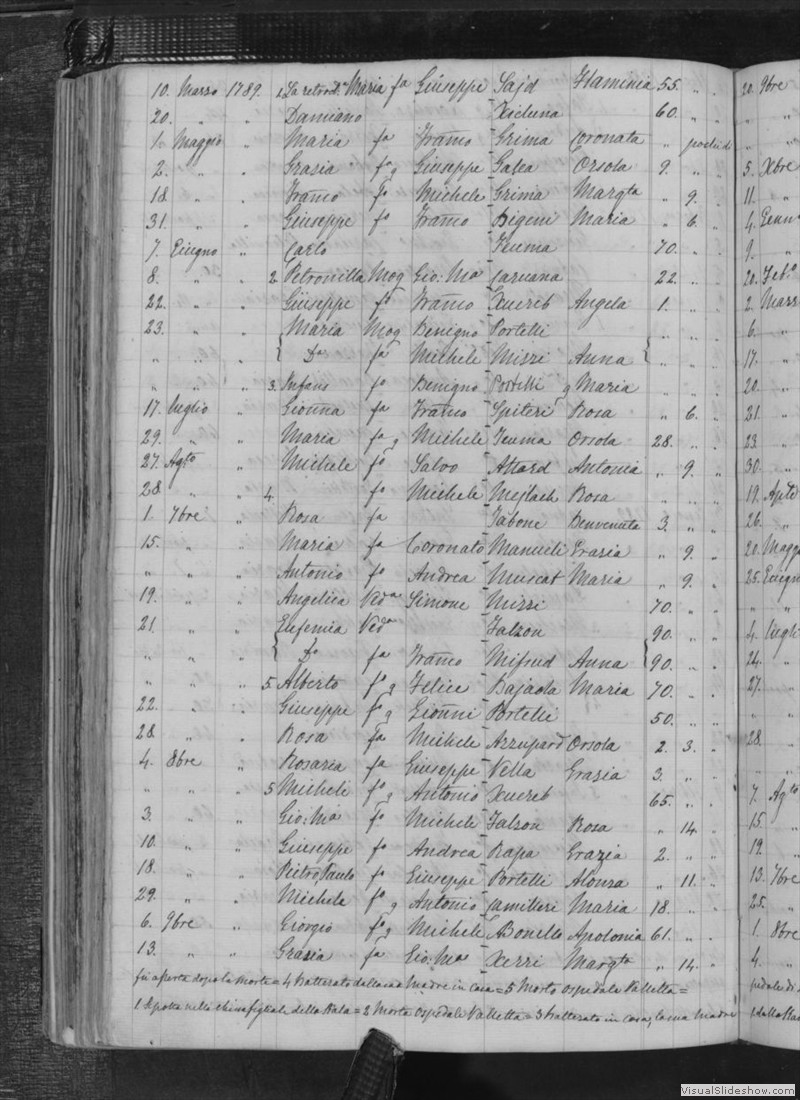 10. Marzo 1789. 1. La retrod.ᵃ Maria fᵃ Giuseppe Sajd Flaminia 55. " . 20. 9bre
20. " . Damiano Xicluna 60. " . "
1. Maggio " Maria fᵃ Franco Grima Coronata "
2. " . Grazia fᵃ g Giuseppe Galea Orsola 9. " . 5. Xbre
18. " . Franco fo Michele Grima Margta " 9. " 11. "
31. " . Giuseppe fo Franco Bigeni Maria " 6. " 4.
7. Giugno " Carlo Teuma 70. " . 9. "
8. " . 2. Petronilla Mog Gio: Ma Caruana 22. " . 20. Feb.o
22. " . Giuseppe fo Franco Xuereb Angela 1. " . 2.
23. " . Maria Mog Benigno Portelli " . 6. "
" " " Da fa Michele Mizzi Anna " " 17. "
" " " 3. Infans fo Benigno Portelli g Maria " " . 20. "
17. Luglio " Gionna fa Franco Spiteri Rosa " 6. . 21. "
29. " " Maria fa g Michele Teuma Orsola 28. " . 23 "
27. Agto " Michele fo Salvo Attard Antonia " 9. . 30. "
28 " " 4. fo Michele Mejlach Rosa " " . 19. Aple
1. 7bre " Rosa fa Tabone Benvenuta 3. " . 26. "
15. " " Maria fa Coronato Manueli Grazia " 9. . 20.
" " " Antonio fo Andrea Muscat Maria " 9. . 25.
19. " " Angelica Veda Simone Mizzi 70. " . " "
21. " " Eufemia Veda Falzon 90. " . 4.
" " " Da fa Franco Mifsud Anna 90. " . 24. "
" " " 5 Alberto fo g Felice Bajada Maria 70. " . 27. "
22. " " Giuseppe fo g Gionni Portelli 50. " . " "
28 " " Rosa fa Michele Azzupard Orsola 2. 3. . 28. "
4. 8bre " Rosaria fa Giuseppe Vella Grazia 3. " . " "
" " " 5 Micheli fo g Antonio Xuereb 65. " . 7. Agto
3. " " Gio: Ma fo Michele Falzon Rosa " 14. " 15. "
10. " " Giuseppe fo Andrea Rapa Grazia 2. " " 19. "
18. " " Pietro Paulo fo Giuseppe Portelli Alonza " 11. " 13. 7bre
29. " " Michele fo g Antonio Camilleri Maria 18. " . 25. "
6. 9bre " Giorgio fo g Michele Bonello Apolonia 61. " . 1. 8bre
13. " " Grazia fa Gio: Ma Xerri Margta " 14. " 4. "
fù aperta dopo la morte = 4 Battezato dalla sua Madre in casa = 5 Morto Ospedale Valletta =
1 Sepolta nella chiesa figliale della Bala = 2 Morta Ospedale Valletta = 3 Battezato in casa, la sua Madre
VisualSlideshow.com